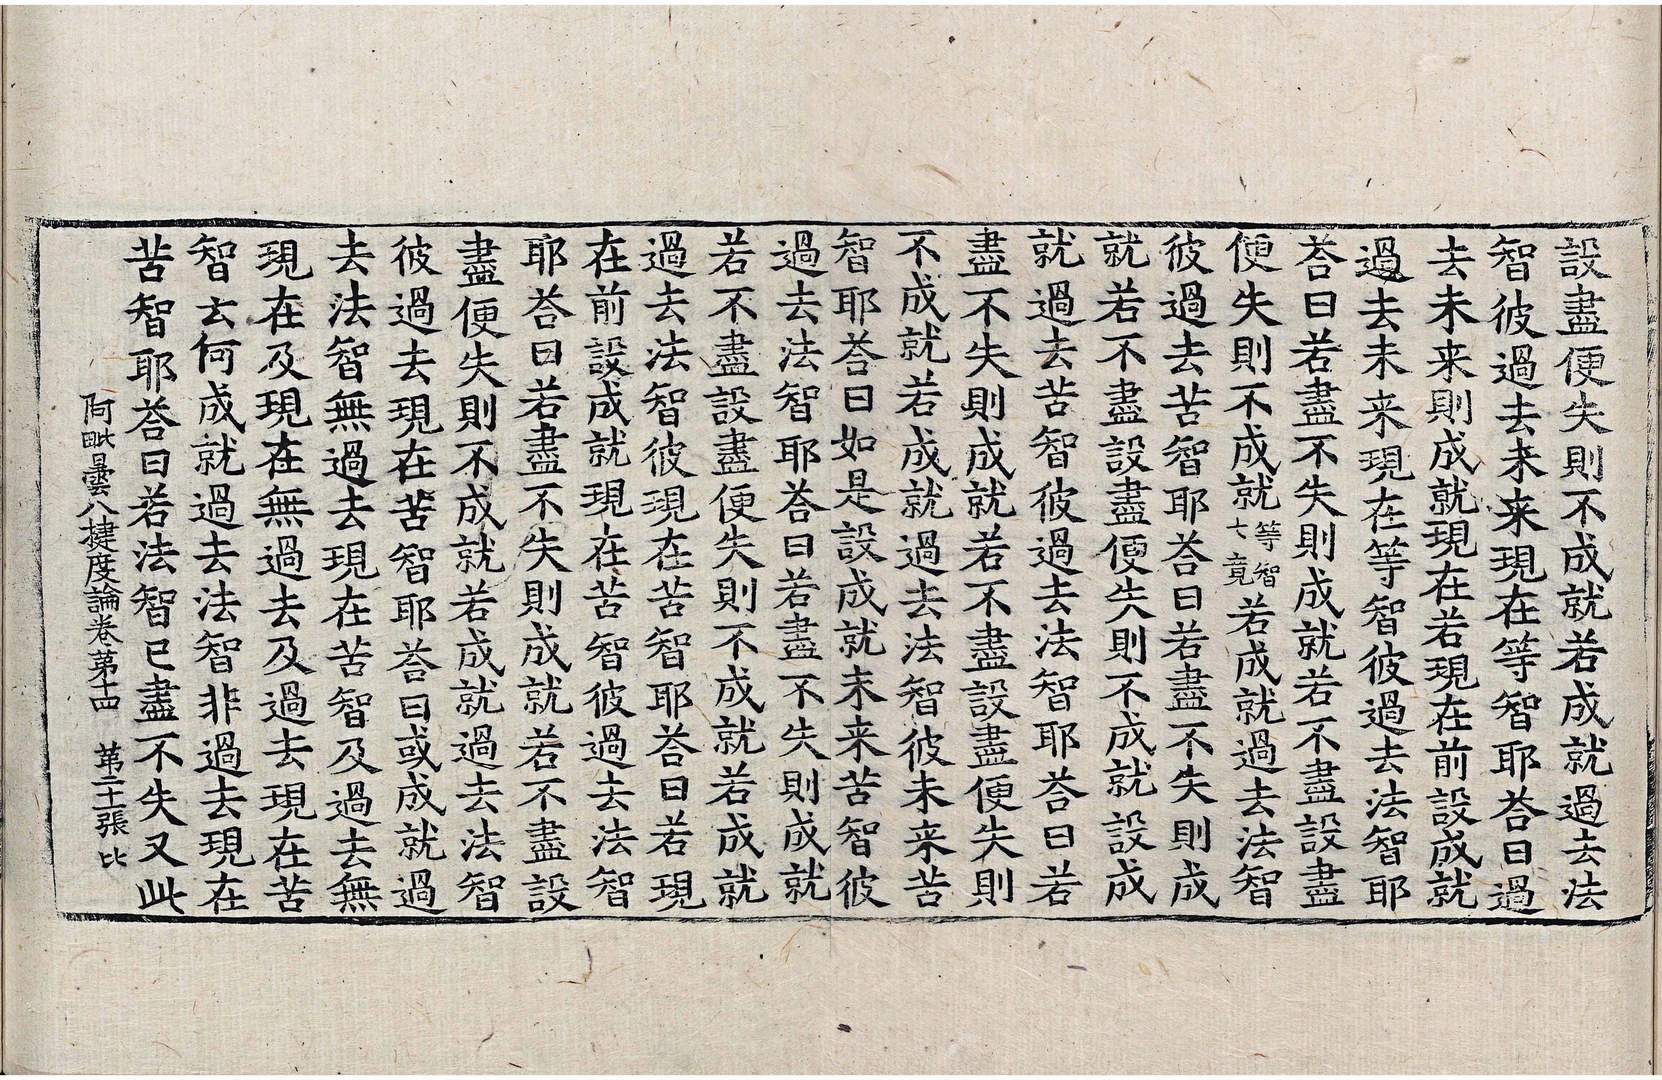 設盡便失則不成就若成就過去法
智彼過去未来現在等智耶荅曰過
去未来則成就現在若現在前設成就
過去未来現在等智彼過去法智耶
荅曰若盡不失則成就若不盡設盡
便失則不成就等智七竟若成就過去法智
彼過去苦智耶荅曰若盡不失則成
就若不盡設盡便失則不成就設成
就過去苦智彼過去法智耶荅曰若
盡不失則成就若不盡設盡便失則
不成就若成就過去法智彼未来苦
智耶荅曰如是設成就未来苦智彼
過去法智耶荅曰若盡不失則成就
若不盡設盡便失則不成就若成就
過去法智彼現在苦智耶荅曰若現
在前設成就現在苦智彼過去法智
耶荅曰若盡不失則成就若不盡設
盡便失則不成就若成就過去法智
彼過去現在苦智耶荅曰或成就過
去法智無過去現在苦智及過去無
現在及現在無過去及過去現在苦
智云何成就過去法智非過去現在
苦智耶荅曰若法智已盡不失又此
阿毗曇八揵度論卷第十四 第二十張 比